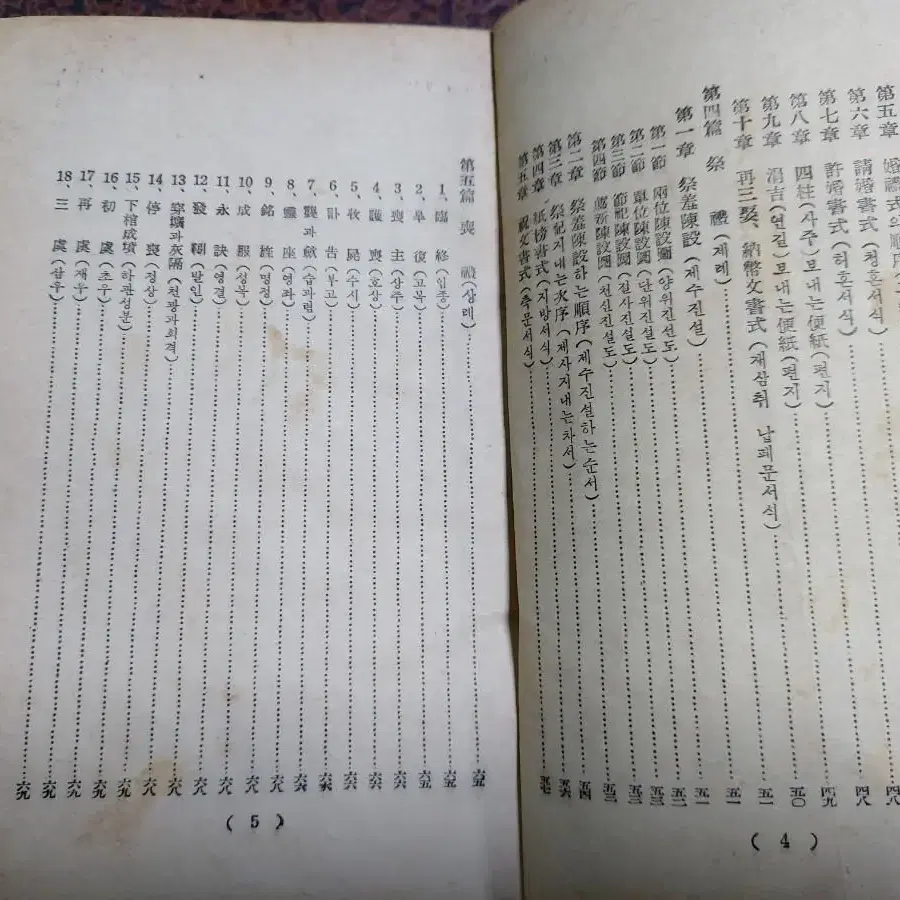 第五章 婚禮式의 順序
第六章 請婚書式(청혼서식) 四八
第七章 許婚書式(허혼서식) 四八
第八章 四柱(사주)보내는便紙(편지) 四九
第九章 涓吉(연길)보내는便紙(편지) 五〇
第十章 再三娶、納幣文書式(재삼취 납폐문서식) 五一
第四篇 祭 禮(제례) 五一
第一章 祭羞陳設(제수진설) 五一
第一節 兩位陳設圖(양위진선도) 五二
第二節 單位陳設圖(단위진설도) 五三
第三節 節祀陳設圖(절사진설도) 五三
第四節 薦新陳設圖(천신진설도) 五三
第二章 祭羞陳設하는順序(제수진설하는순서) 五四
第三章 祭祀지내는次序(제사지내는차서)
第四章 紙榜書式(지방서식)
第五章 祝文書式(축문서식)
( 4 )
第五篇 喪 禮(상례) 六五
1、臨 終(임종) 六五
2、皐 復(고복) 六五
3、喪 主(상주) 六五
4、護 喪(호상) 六六
5、收 屍(수시) 六六
6、訃 告(부고)
7、襲과 斂(습과렴) 六六
8、靈 座(영좌) 六八
9、銘 旌(명정) 六八
10、成 服(성복) 六八
11、永 訣(영결) 六八
12、發 靷(발인) 六八
13、穿壙과灰隔(천광과회격) 六八
14、停 喪(정상) 六八
15、下棺成墳(하관성분) 六九
16、初 虞(초우) 六九
17、再 虞(재우) 六九
18、三 虞(삼우) 六九
( 5 )